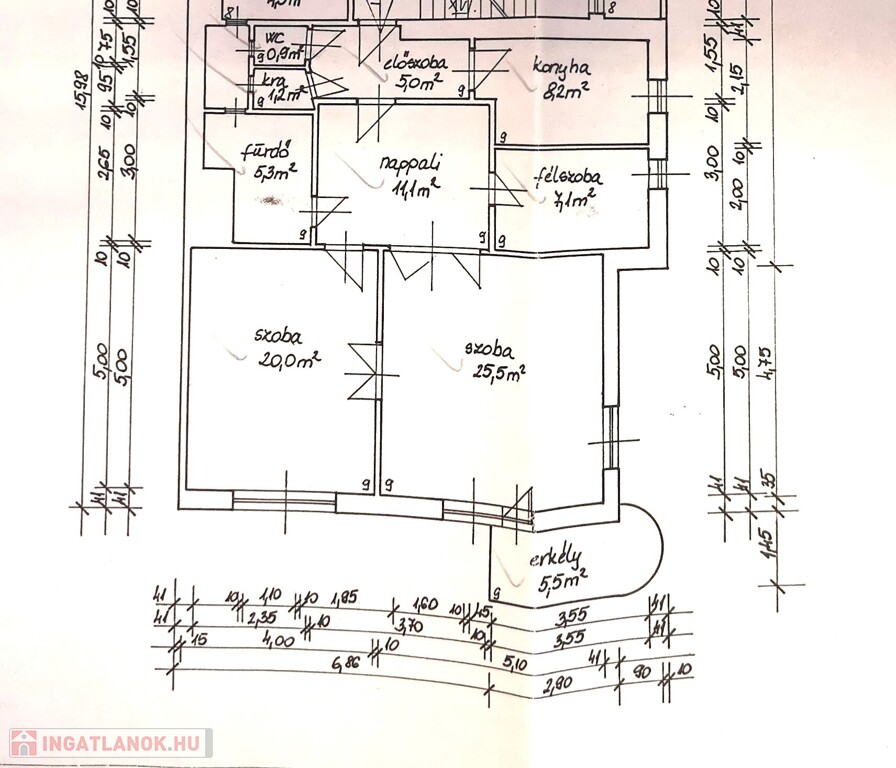 8
8
wc
0,9m²
9
kra
1,2m²
9
előszoba
5,0m²
9
konyha
8,2m²
9
fürdő
5,3m²
9
nappali
11,1m²
9
félszoba
7,1m²
9
szoba
20,0m²
9
szoba
25,5m²
9
erkély
5,5m²
9
15,98
10
75
95
10
2,65
10
5,00
41
10
1,55
10
3,00
10
5,00
41
10
1,55
10
3,00
10
5,00
41
41
2,15
10
2,00
10
5,00
41
4,75
35
1,45
41
10
1,10
10
1,85
1,60
10
45
3,55
41
41
2,35
10
3,70
10
3,55
41
15
4,00
10
5,10
41
6,86
2,90
90
10
INGATLANOK.HU